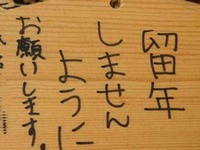 留年
しません
ように
お願いします。